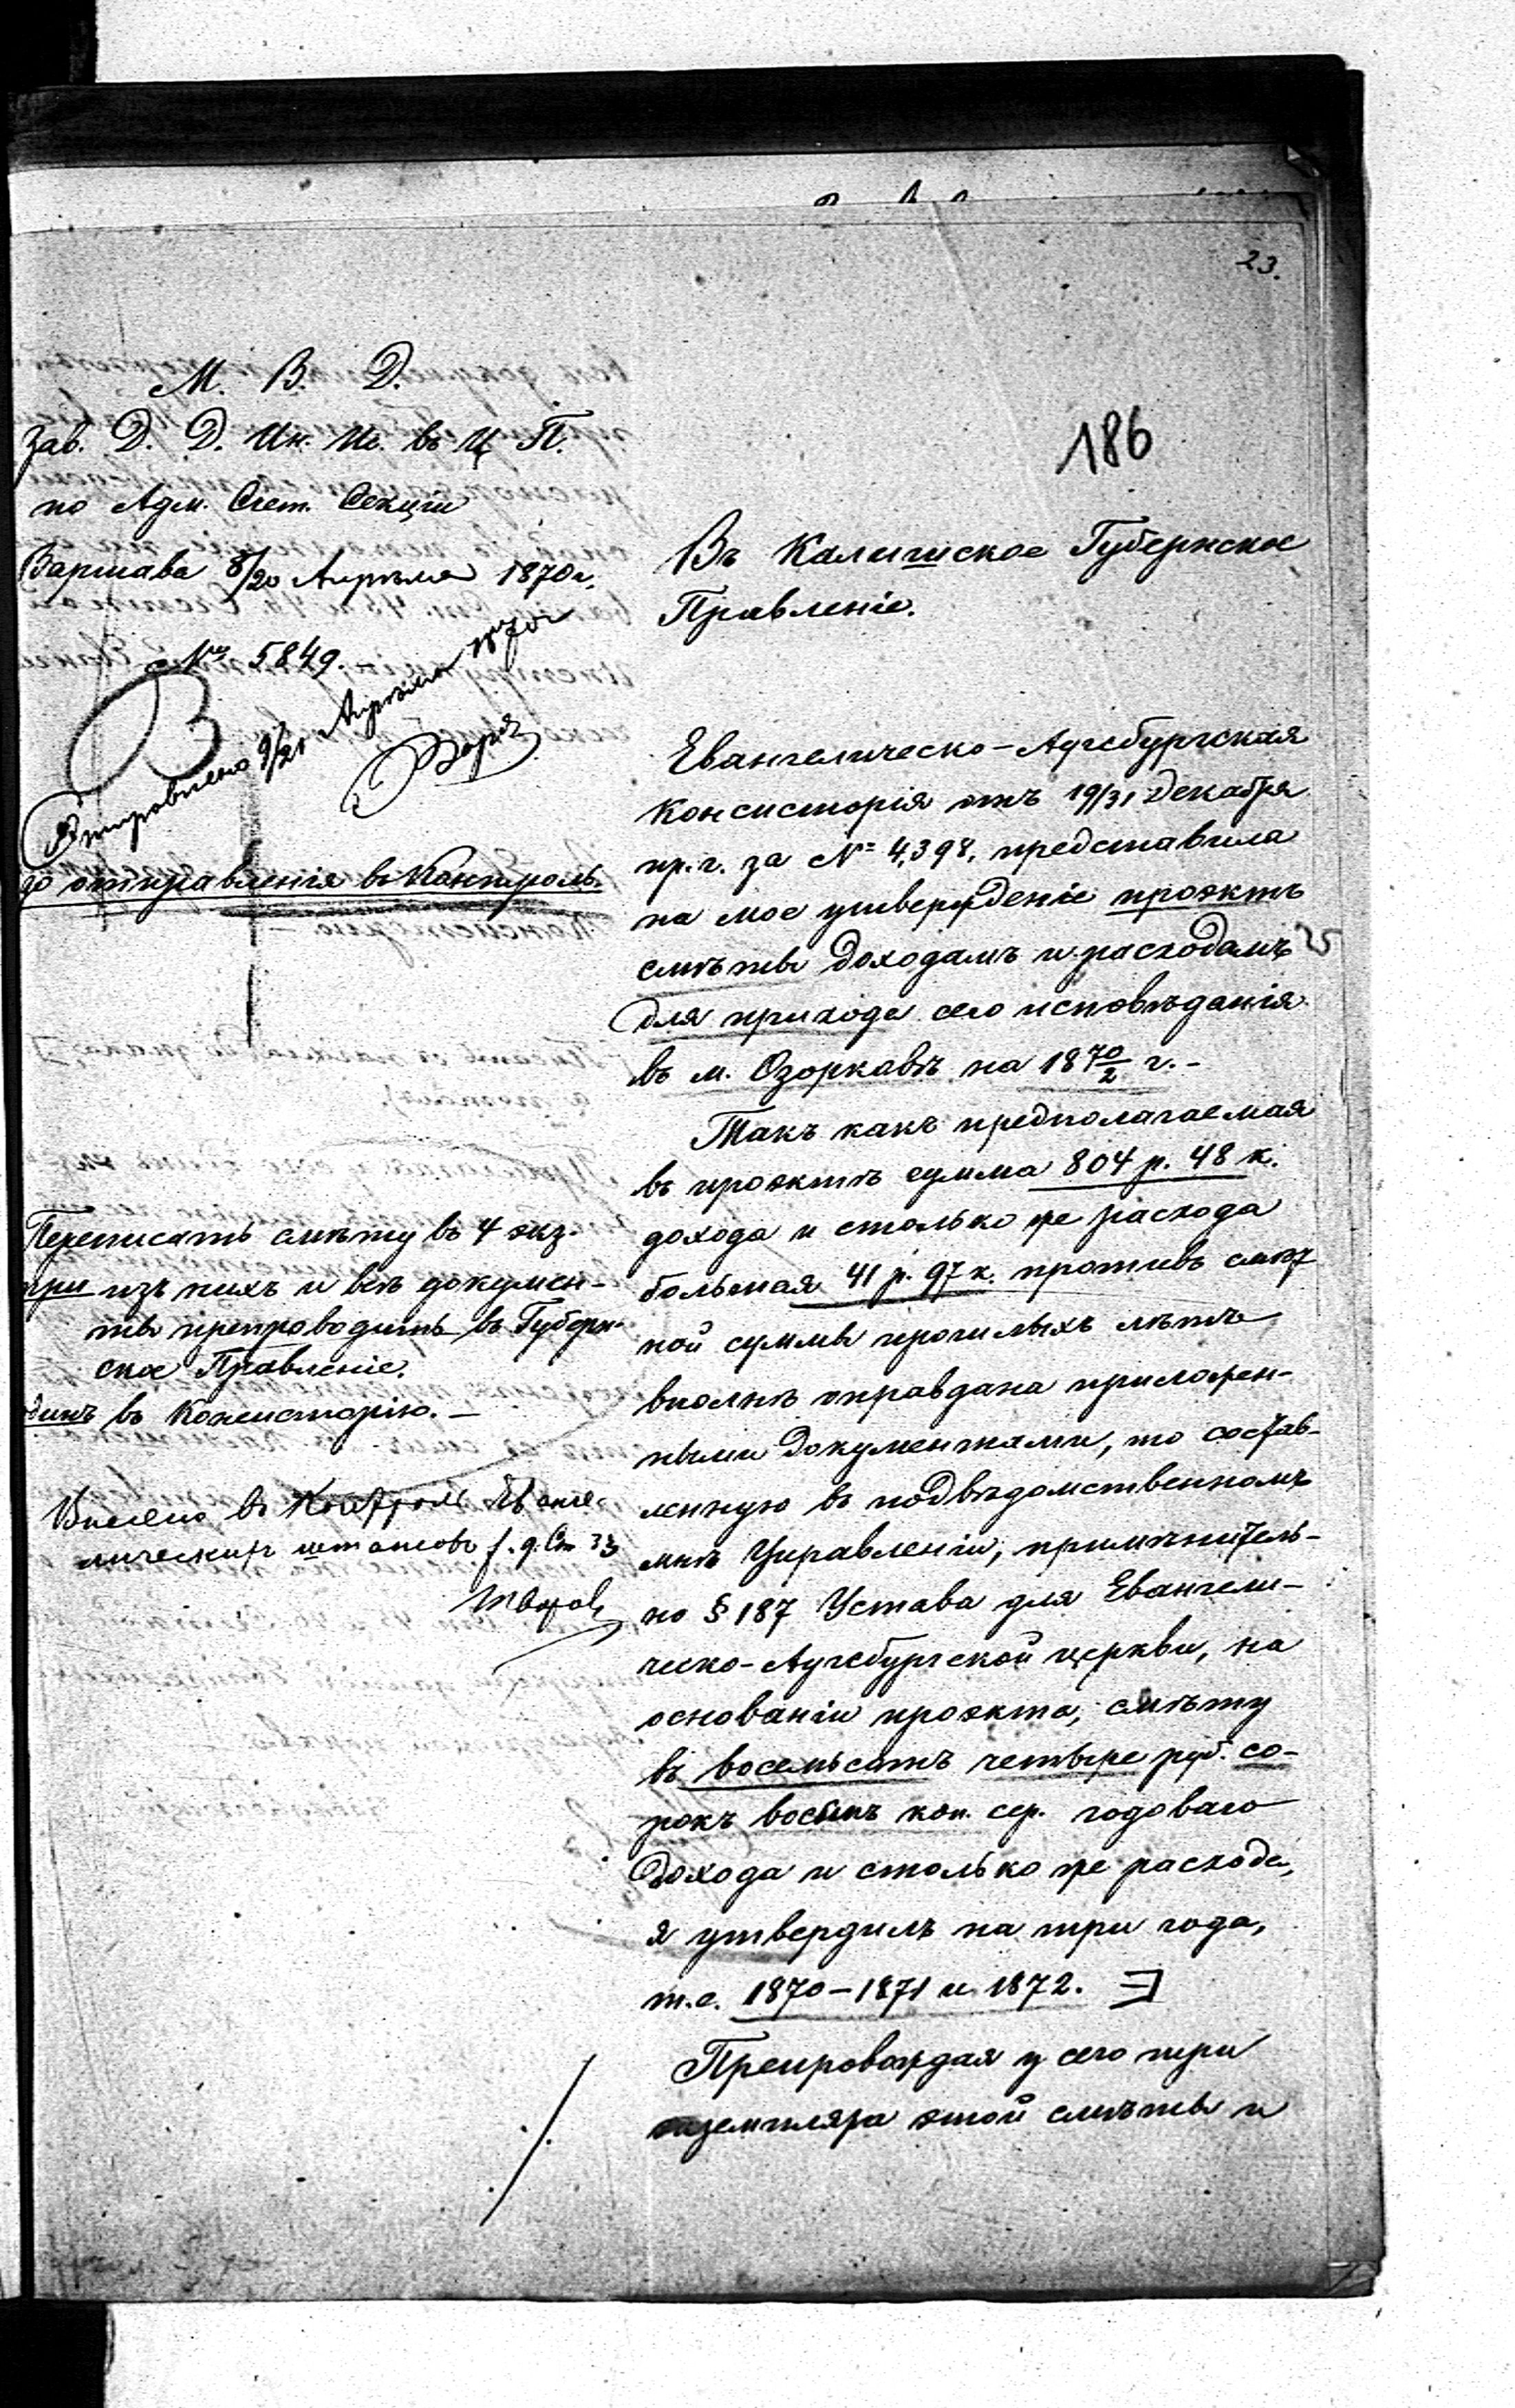 23.
186
М. В. Д.
Зав. Д. Д. Ин. Ис. въ Ц П.
по Адм. Счет. Секціи
Варшава 8/20 Апрѣля 1870 г.
№ 5849.
9/21 Апрѣля 1870 г
до отправленія въ Контроль.
Переписать смѣту въ 4 экз.
три изъ нихъ и всѣ докумен-
ты препроводить въ Губерн-
ское Правленіе.
одинъ въ Консисторію. —
Внесено въ Контроль Еванге-
лическихъ штатовъ 33
Въ Калишское Губернское
Правленіе.
Евангелическо-Аугсбургская
Консисторія отъ 19/31 Декабря
пр. г. за № 4,398, представила
на мое утвержденіе проэктъ
смѣты доходамъ и расходамъ 25
для прихода сего исповѣданія
въ м. Озорковѣ на 1870/2 г. -
Такъ какъ предполагаемая
въ проэктѣ сумма 804 р. 48 к.
дохода и столько же расхода
большая 41 р. 97 к. противъ смѣт
ной суммы прошлыхъ лѣтъ
вполнѣ оправдана приложен-
ными документами, то состав-
ленную въ подвѣдомственномъ
мнѣ Управленіи, примѣнитель-
но § 187 Устава для Евангели-
ческо-Аугсбургской церкви, на
основаніи проэкта, смѣту
въ восемьсотъ четыре руб. со-
рокъ восемь коп. сер. годоваго
дохода и столько же расхода,
я утвердилъ на три года,
т. е. 1870-1871 и 1872.
Препровождая у сего три
экземпляра этой смѣты и